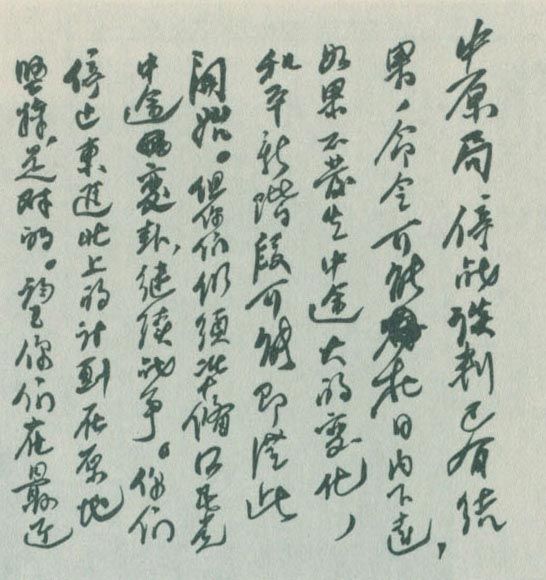 中原局：停战谈判已有结
果，命令可能在日内下达，
如果不发生中途大的变化，
和平新阶段可能即从此
開始。但你们仍须准備国民党
中途变卦，継续战争。你们
停止東進北上的计劃在原地
坚持，是对的。望你们在最近